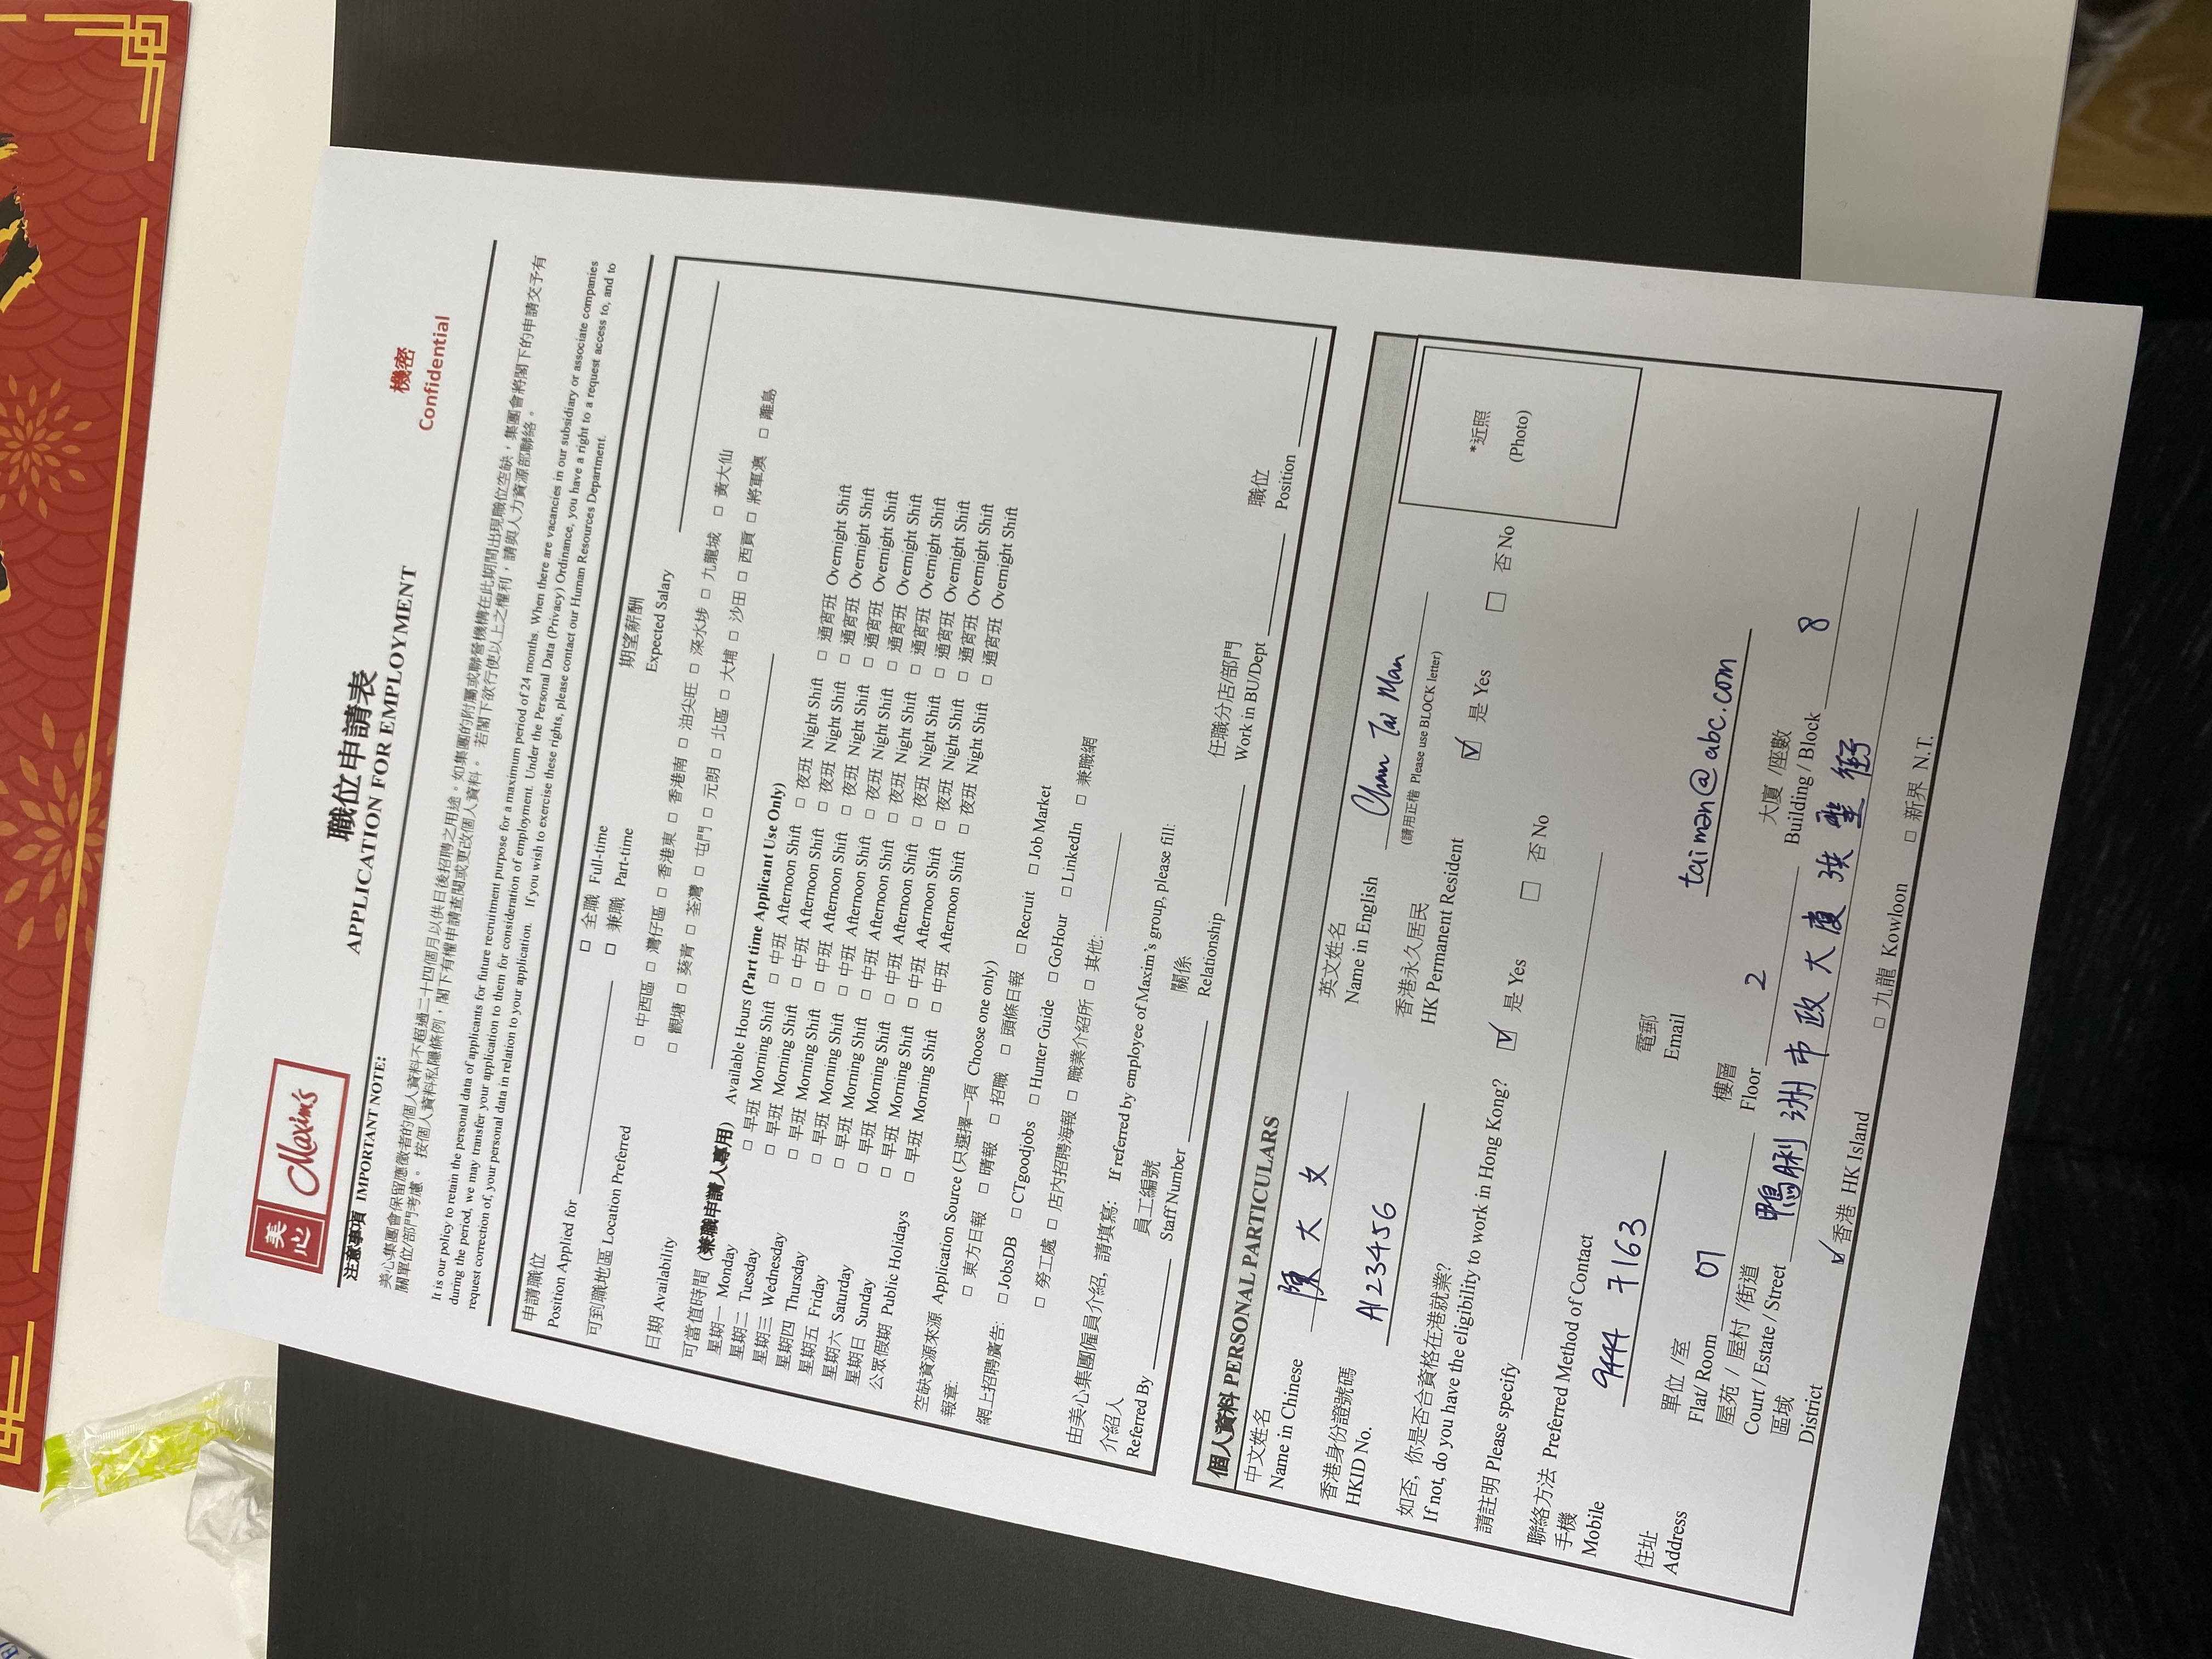 美心 Maxim's
職位申請表
APPLICATION FOR EMPLOYMENT
機密
Confidential
注意事項 IMPORTANT NOTE:
美心集團會保留應徵者的個人資料不超過二十四個月以供日後招聘之用途。如集團的附屬或聯營機構在此期間出現職位空缺，集團會將閣下的申請交予有
關單位/部門考慮。 按個人資料私隱條例，閣下有權申請查閱或更改個人資料。 若閣下欲行使以上之權利，請與人力資源部聯絡。
It is our policy to retain the personal data of applicants for future recruitment purpose for a maximum period of 24 months. When there are vacancies in our subsidiary or associate companies
during the period, we may transfer your application to them for consideration of employment. Under the Personal Data (Privacy) Ordinance, you have a right to a request access to, and to
request correction of, your personal data in relation to your application. If you wish to exercise these rights, please contact our Human Resources Department.
申請職位
Position Applied for
□ 全職 Full-time
□ 兼職 Part-time
期望薪酬
Expected Salary
可到職地區 Location Preferred
□ 中西區 □ 灣仔區 □ 香港東 □ 香港南 □ 油尖旺 □ 深水埗 □ 九龍城 □ 黃大仙
□ 觀塘 □ 葵青 □ 荃灣 □ 屯門 □ 元朗 □ 北區 □ 大埔 □ 沙田 □ 西貢 □ 將軍澳 □ 離島
日期 Availability
可當值時間 (兼職申請人專用) Available Hours (Part time Applicant Use Only)
星期一 Monday □ 早班 Morning Shift □ 中班 Afternoon Shift □ 夜班 Night Shift □ 通宵班 Overnight Shift
星期二 Tuesday □ 早班 Morning Shift □ 中班 Afternoon Shift □ 夜班 Night Shift □ 通宵班 Overnight Shift
星期三 Wednesday □ 早班 Morning Shift □ 中班 Afternoon Shift □ 夜班 Night Shift □ 通宵班 Overnight Shift
星期四 Thursday □ 早班 Morning Shift □ 中班 Afternoon Shift □ 夜班 Night Shift □ 通宵班 Overnight Shift
星期五 Friday □ 早班 Morning Shift □ 中班 Afternoon Shift □ 夜班 Night Shift □ 通宵班 Overnight Shift
星期六 Saturday □ 早班 Morning Shift □ 中班 Afternoon Shift □ 夜班 Night Shift □ 通宵班 Overnight Shift
星期日 Sunday □ 早班 Morning Shift □ 中班 Afternoon Shift □ 夜班 Night Shift □ 通宵班 Overnight Shift
公眾假期 Public Holidays □ 早班 Morning Shift □ 中班 Afternoon Shift □ 夜班 Night Shift □ 通宵班 Overnight Shift
空缺資源來源 Application Source (只選擇一項 Choose one only)
報章: □ 東方日報 □ 晴報 □ 招職 □ 頭條日報 □ Recruit □ Job Market
網上招聘廣告: □ JobsDB □ CTgoodjobs □ Hunter Guide □ GoHour □ LinkedIn □ 兼職網
□ 勞工處 □ 店內招聘海報 □ 職業介紹所 □ 其他:
由美心集團僱員介紹, 請填寫: If referred by employee of Maxim's group, please fill:
介紹人
Referred By
員工編號
Staff Number
關係
Relationship
任職分店/部門
Work in BU/Dept
職位
Position
個人資料 PERSONAL PARTICULARS
中文姓名
Name in Chinese 陳大文
英文姓名
Name in English Chan Tai Man
(請用正楷 Please use BLOCK letter)
香港身份證號碼
HKID No. A123456
香港永久居民
HK Permanent Resident ☑ 是 Yes □ 否 No
*近照
(Photo)
如否, 你是否合資格在港就業?
If not, do you have the eligibility to work in Hong Kong? ☑ 是 Yes □ 否 No
請註明 Please specify
聯絡方法 Preferred Method of Contact
手機
Mobile 9444 7163
電郵
Email taiman@abc.com
住址
Address
單位 /室
Flat/ Room 07
樓層
Floor 2
大廈 /座數
Building / Block 8
屋苑 / 屋村 /街道
Court / Estate / Street 鴨脷洲市政大廈洪聖街
區域
District ☑ 香港 HK Island □ 九龍 Kowloon □ 新界 N.T.